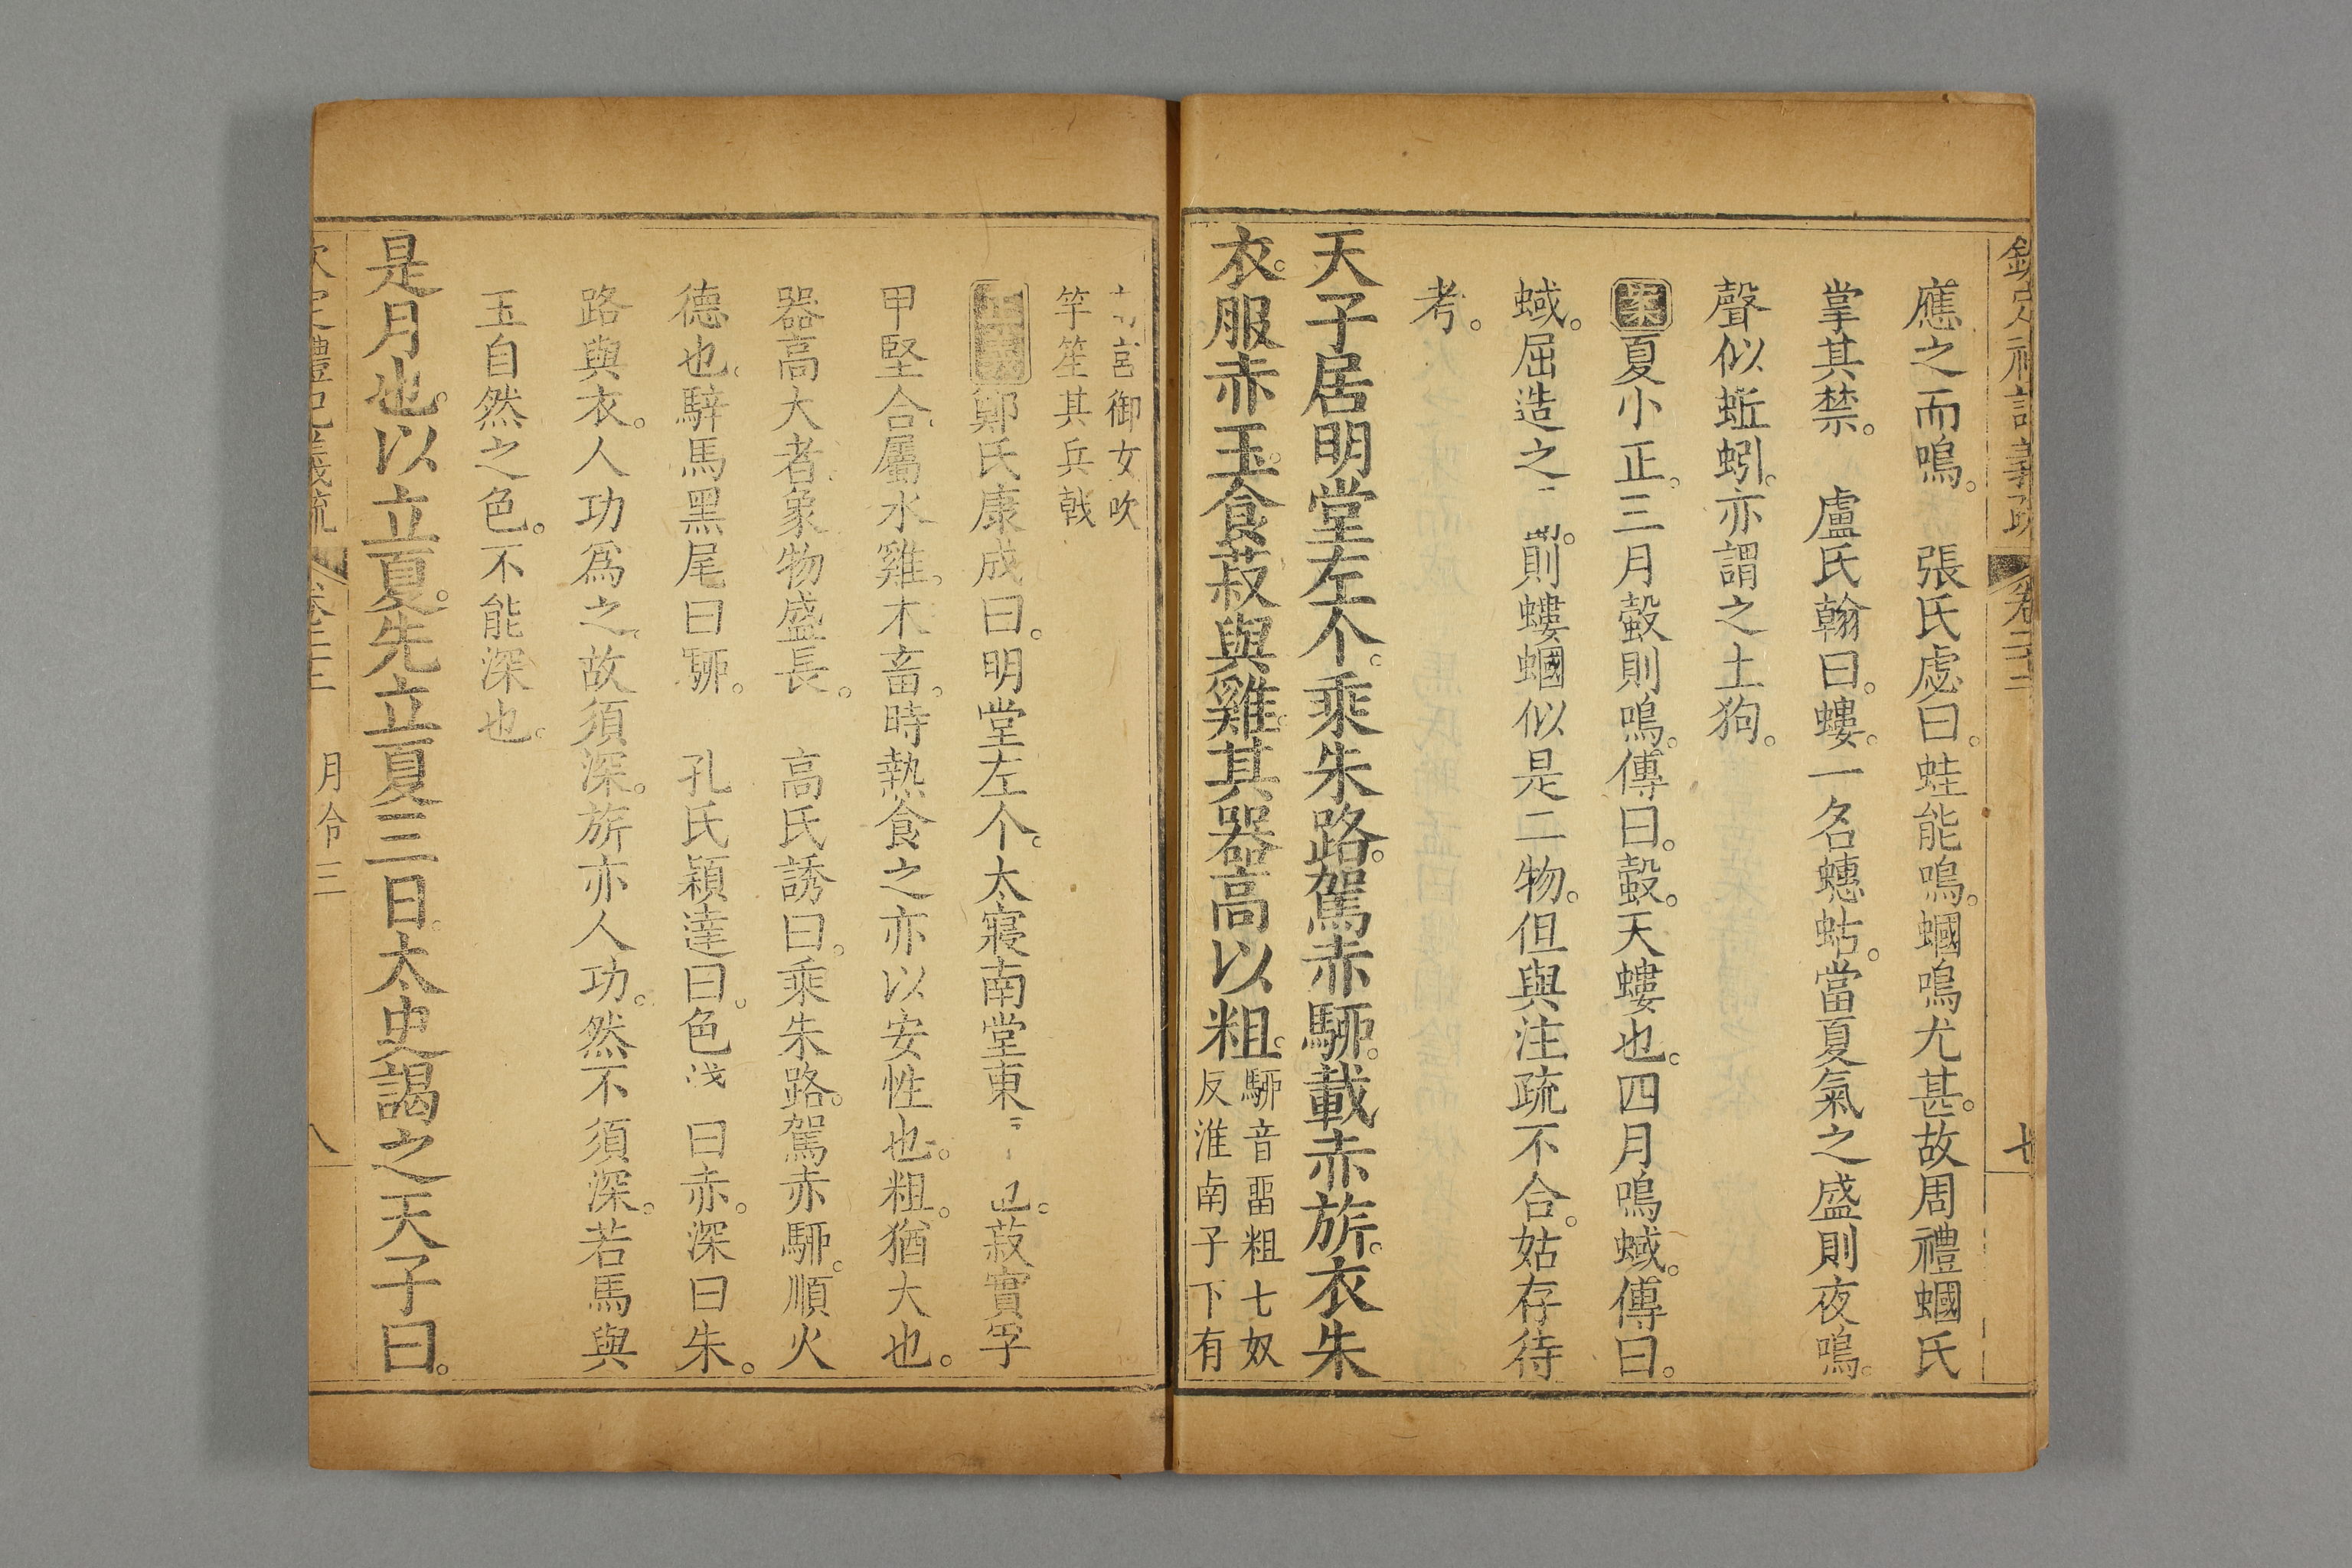 應之而鳴。　張氏慮曰。蛙能鳴。蟈鳴尤甚。故周禮蟈氏
掌其禁。　盧氏翰曰。螻。一名蟪蛄。當夏氣之盛則夜鳴。
聲似蚯蚓。亦謂之土狗。
案夏小正。三月螜則鳴。傳曰。螜。天螻也。四月鳴蜮。傳曰。
蜮。屈造之屬。則螻蟈似是二物。但與注疏不合。姑存待
考。
天子居明堂左个。乘朱路。駕赤駵。載赤旂。衣朱
衣。服赤玉。食菽與雞。其器高以粗。駵音畱粗七奴
反淮南子下有
南宮御女吹
竽笙其兵戟
正義鄭氏康成曰。明堂左个。太寢南堂東偏也。菽實孚
甲堅合。屬水。雞。木畜。時熱食之。亦以安性也。粗。猶大也。
器高大者。象物盛長。　高氏誘曰。乘朱路。駕赤駵。順火
德也。騂馬黑尾曰駵。　孔氏穎達曰。色淺曰赤。深曰朱。
路與衣。人功爲之。故須深。旂亦人功。然不須深。若馬與
玉自然之色。不能深也。
是月也。以立夏。先立夏三日。太史謁之天子曰。
欽定禮記義疏　卷二十二　月令三　八